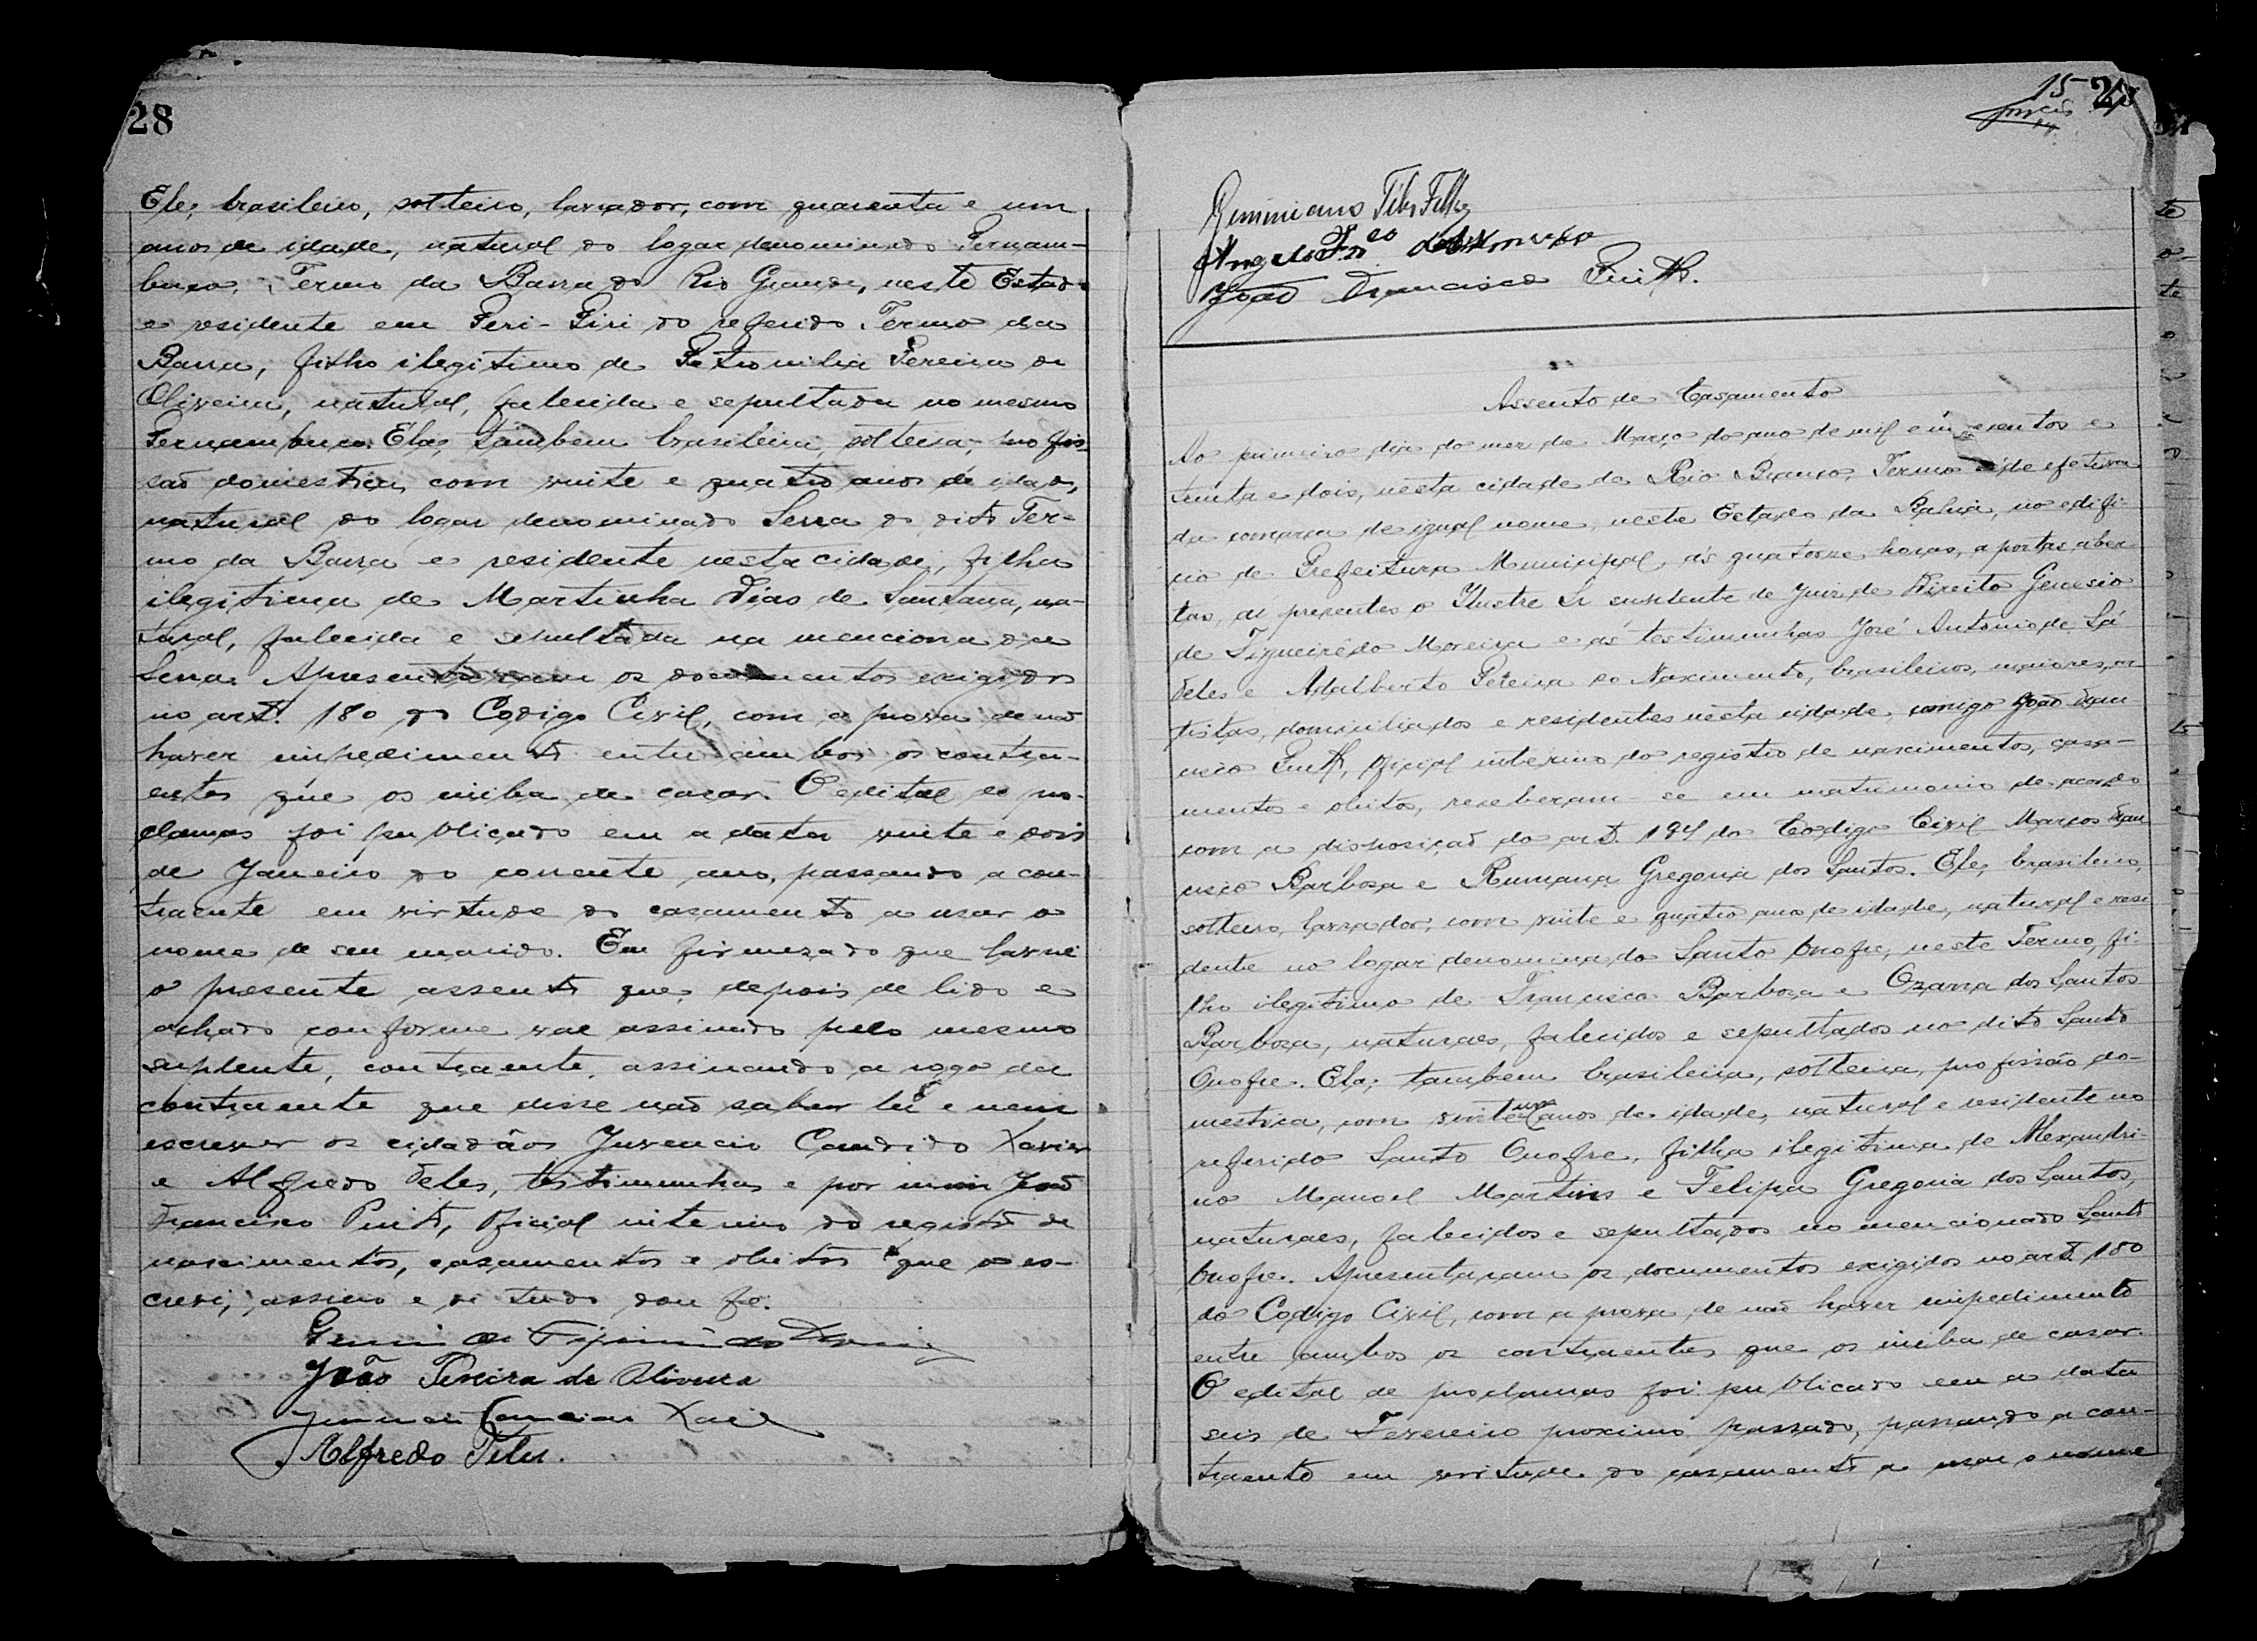 28
Ele; brasileiro, solteiro, lavrador, com quarenta e um
anos de idade, natural do logar denominado Pernam-
buco, Termo da Barra do Rio Grande, neste Estado
e residente em Peri-Piri do referido Termo da
Barra, filho ilegitimo de Petronilia Pereira de
Oliveira, natural, falecida e sepultada no mesmo
Pernambuco. Ela; tambem brasileira, solteira, profis-
são domestica, com vinte e quatro anos de idade,
natural do logar denominado Serra do dito Ter-
mo da Barra e residente nesta cidade, filha
ilegitima de Martinha Dias de Santana, na-
tural, falecida e sepultada na mencionada
Serra. Apresentaram os documentos exigidos
no art. 180 do Codigo Civil, com a prova de não
haver impedimento entre ambos os contra-
entes que os iniba de casar. O edital de pro-
clamas foi publicado em a data vinte e dois
de Janeiro do corrente ano, passando a con-
traente em virtude do casamento a usar o
nome de seu marido. Em firmeza do que lavrei
o presente assento que, depois de lido e
achado conforme vae assinado pelo mesmo
suplente, contraente, assinando a rogo da
contraente que disse não saber ler e nem
escrever os cidadãos Juvencio Candido Xavier
e Alfredo Teles, testimunhas e por mim João
Francisco Puith, Oficial interino do registro de
nascimentos, casamentos e obitos que o es-
crevi, assino e de tudo dou fé.
João Pereira de Oliveira
Alfredo Teles.
15 29
Geminiano Teles Filho
João Francisco Puith.
Assento de Casamento
Ao primeiro dia do mez de Março do ano de mil e novecentos e
trinta e dois, nesta cidade de Rio Branco, Termo séde efetiva
da comarca de igual nome, neste Estado da Bahia, no edifi-
cio de Prefeitura Municipal, ás quatorze horas, a portas aber-
tas, ai presentes o Ilustre Sr suplente de Juiz de Direito Genesio
de Figueirêdo Moreira e ás testimunhas José Antonio de Sá
Teles e Adalberto Pereira do Nascimento, brasileiros, maiores, ar-
tistas, domiciliados e residentes nesta cidade, comigo João Fran
cisco Puith, Oficial interino do registro de nascimentos, casa-
mentos e obitos, receberam-se em matrimonio de acordo
com a disposição do art. 194 do Codigo Civil Marcos Fran
cisco Barbosa e Rumana Gregoria dos Santos. Ele; brasileiro,
solteiro, lavrador, com vinte e quatro anos de idade, natural e resi
dente no logar denominado Santo Onofre, neste Termo, fi-
lho ilegitimo de Francisco Barboza e Ozana dos Santos
Barboza, naturaes, falecidos e sepultados no dito Santo
Onofre. Ela; tambem brasileira, solteira, profissão do-
mestica, com vinte e um anos de idade, natural e residente no
referido Santo Onofre, filha ilegitima de Alexandri-
no Manoel Martins e Felipa Gregoria dos Santos,
naturaes, falecidos e sepultados no mencionado Santo
Onofre. Apresentaram os documentos exigidos no art. 180
do Codigo Civil, com a prova de não haver impedimento
entre ambos os contraentes que os iniba de casar.
O edital de proclamas foi publicado em a data
seis de Fevereiro proximo passado, passando a con-
traente em virtude do casamento a usar o nome